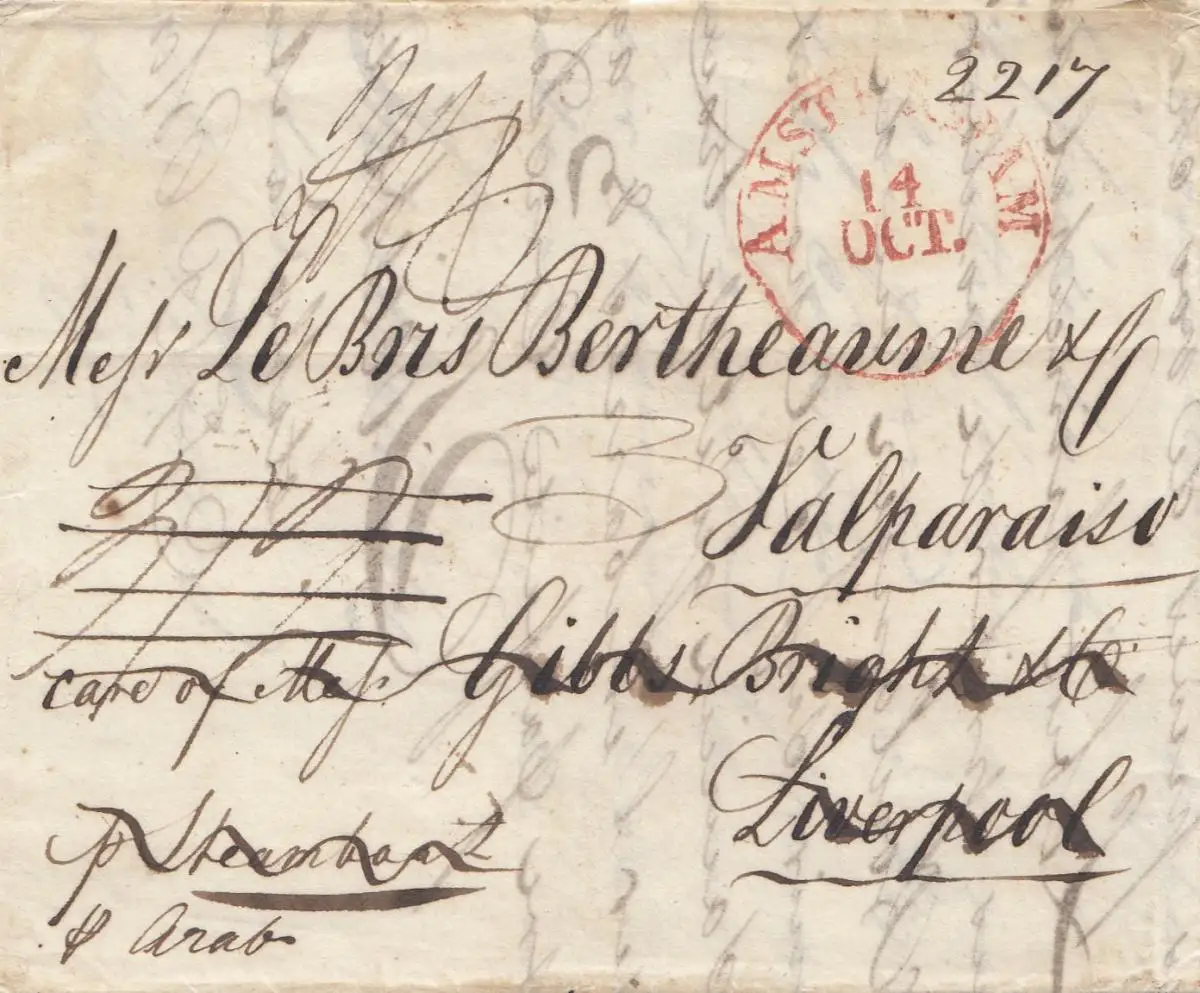 2217
AMSTERDAM
14
OCT.
Messr Le Bris Bertheaume & C
Valparaiso
care of Mess. Gibbs, Bright & Co.
Liverpool
p Steamboat
p Arab